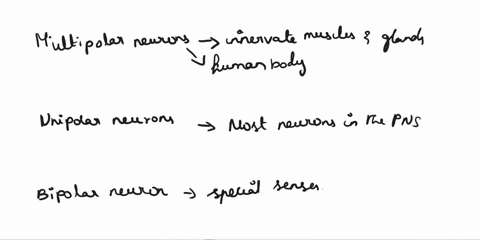 Multipolar neurons → innervate muscles & glands
↘ human body
Unipolar neurons → Most neurons in the PNS
Bipolar neuron → special senses